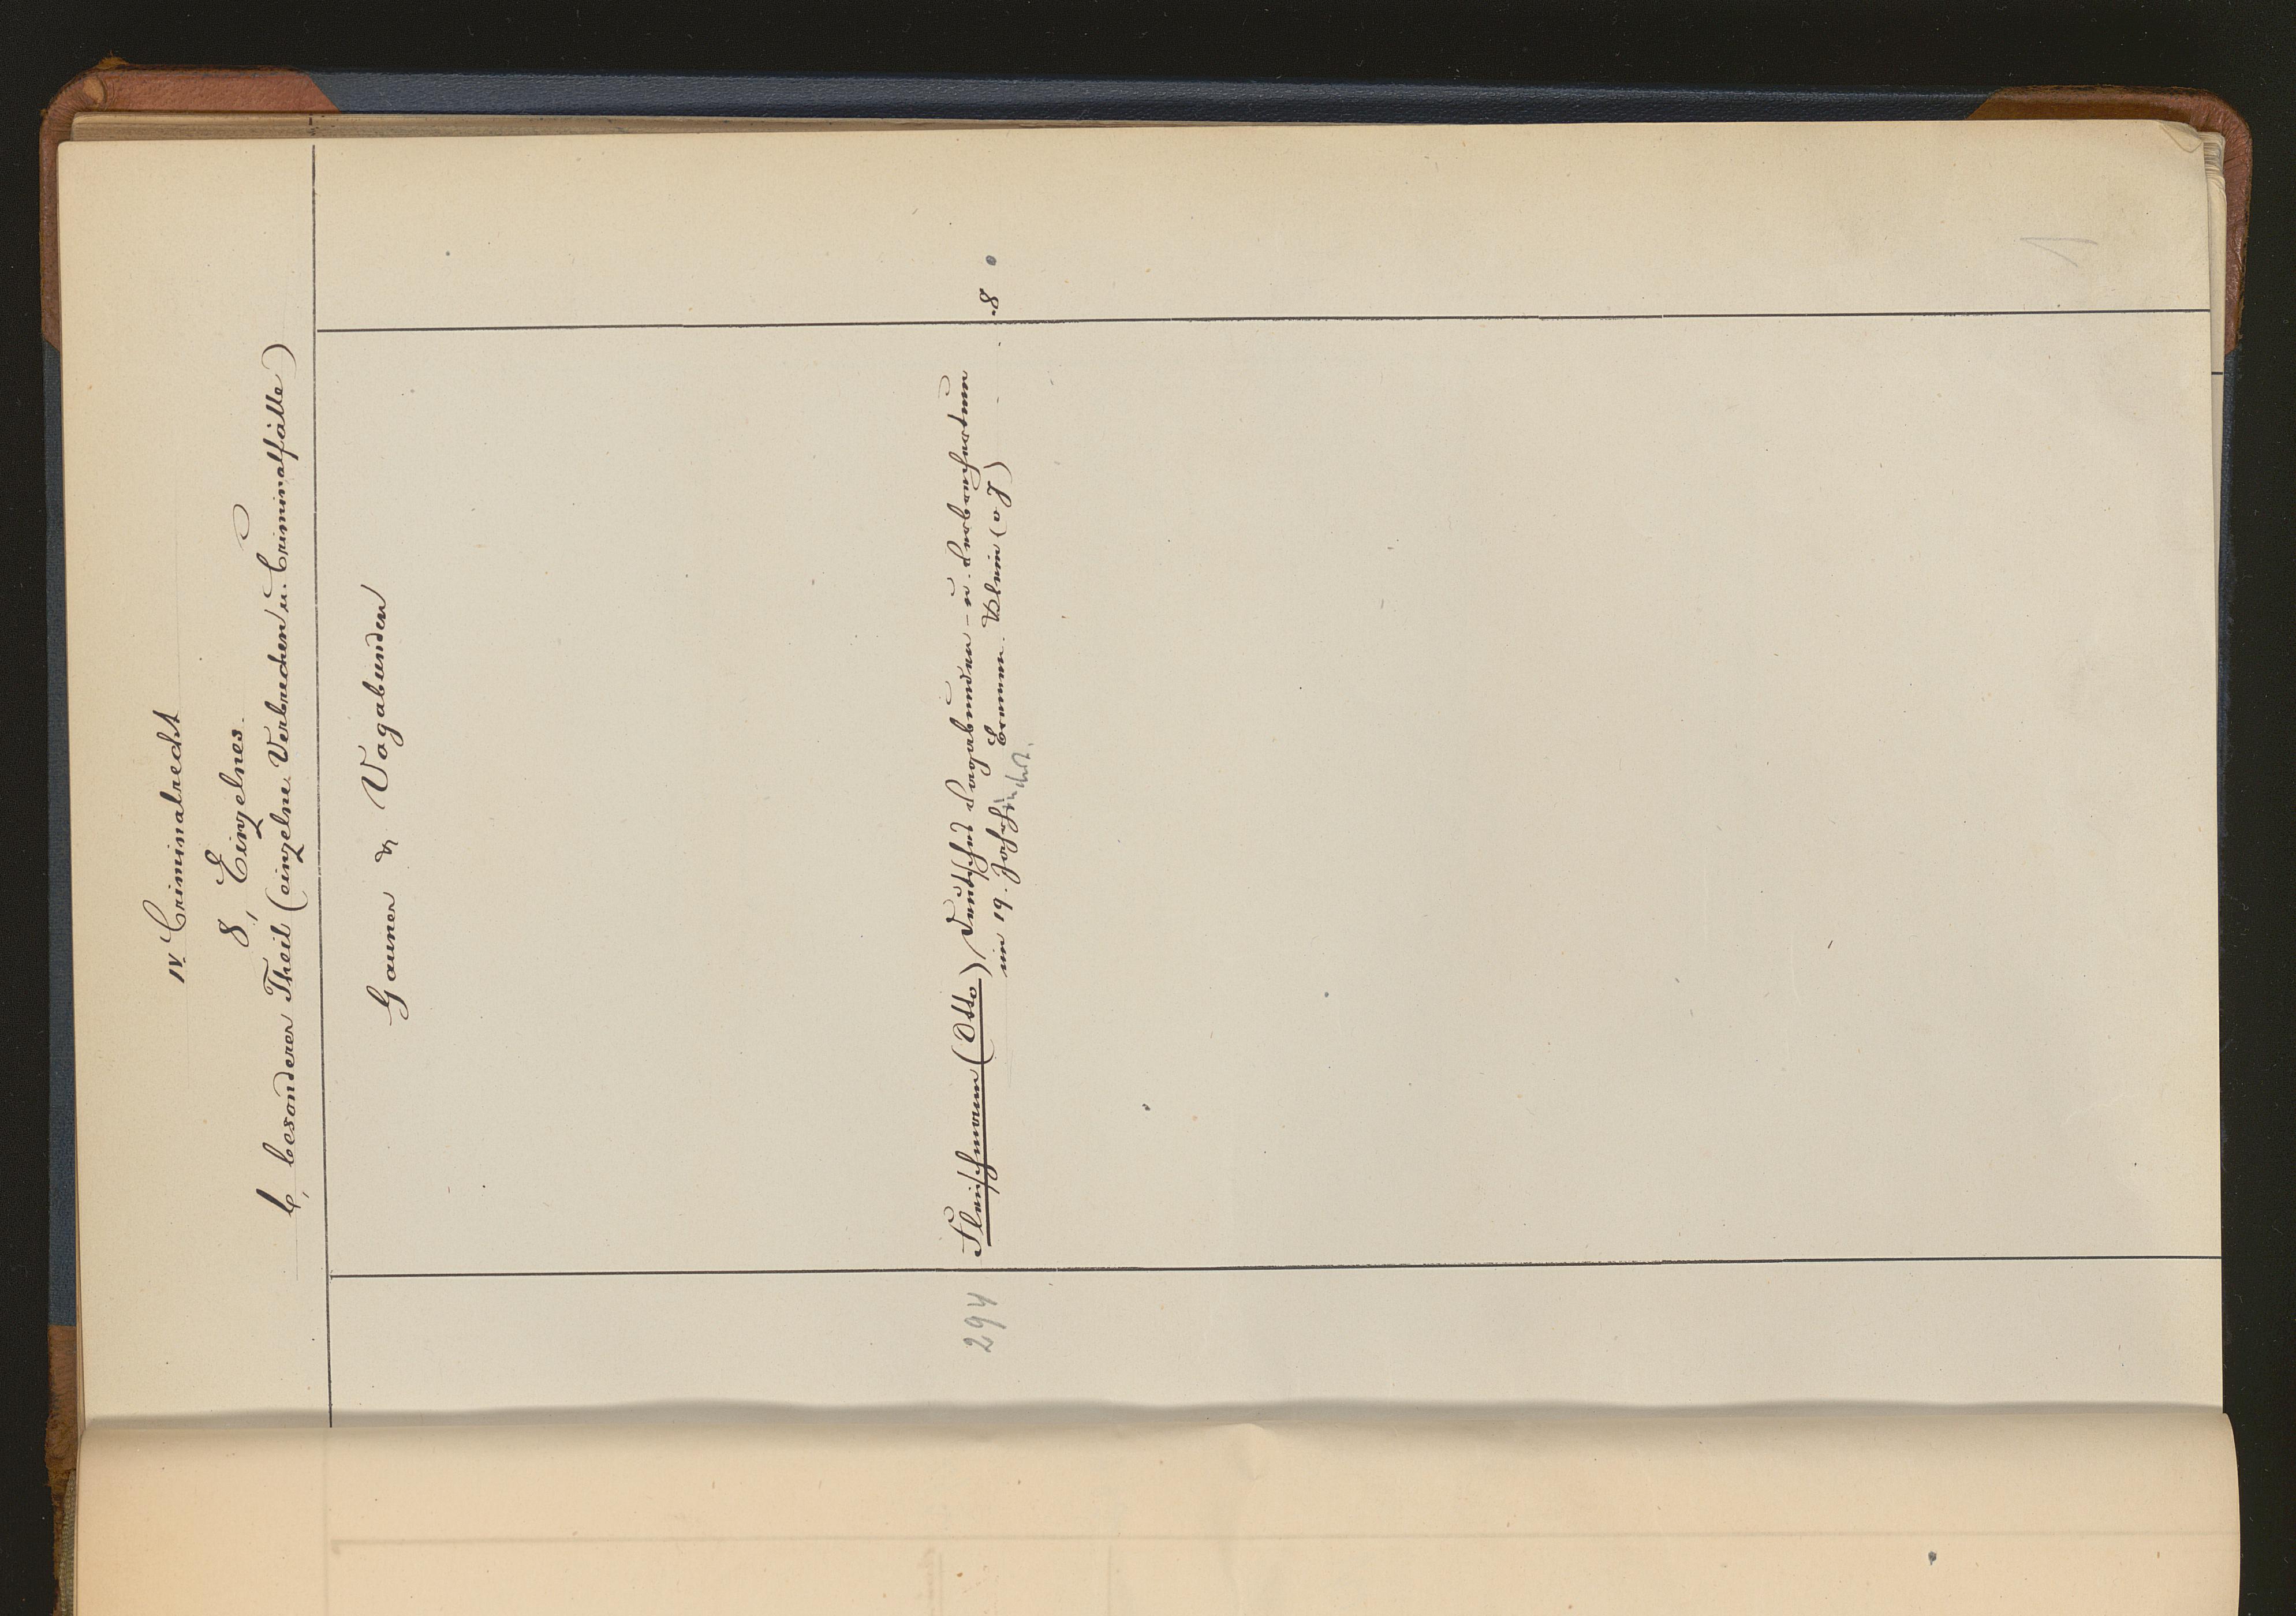 IV. Criminalrecht
8, Einzelnes.
C, besonderer Theil (einzelne Verbrechen u. Criminalfälle)
Gauner & Vagabunden
294 Fleischmann (Otto) Deutsches Vagabunden- u. Verbrecherthum 8
im 19. Jahrhundert. Barmen. Klein (oJ)